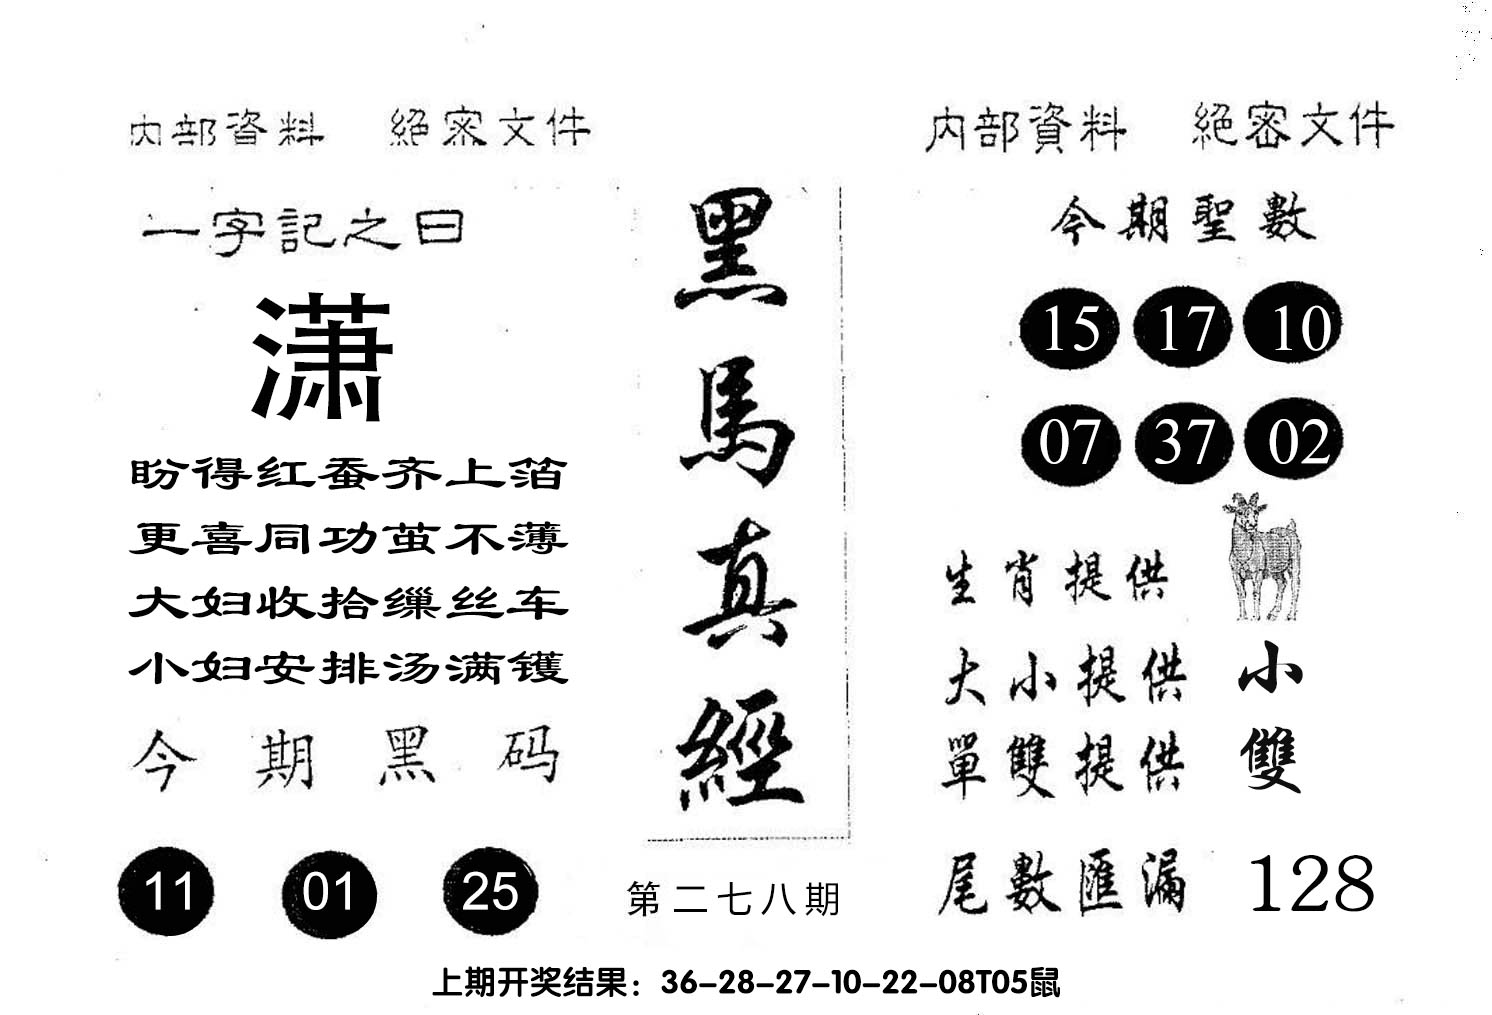 内部資料 絕密文件
一字記之曰
潇
盼得红蚕齐上箔
更喜同功茧不薄
大妇收拾缫丝车
小妇安排汤满镬
今期黑码
11 01 25
黑馬真經
第二七八期
内部資料 絕密文件
今期聖數
15 17 10
07 37 02
生肖提供
大小提供 小
單雙提供 雙
尾數匯漏 128
上期开奖结果：36-28-27-10-22-08T05鼠